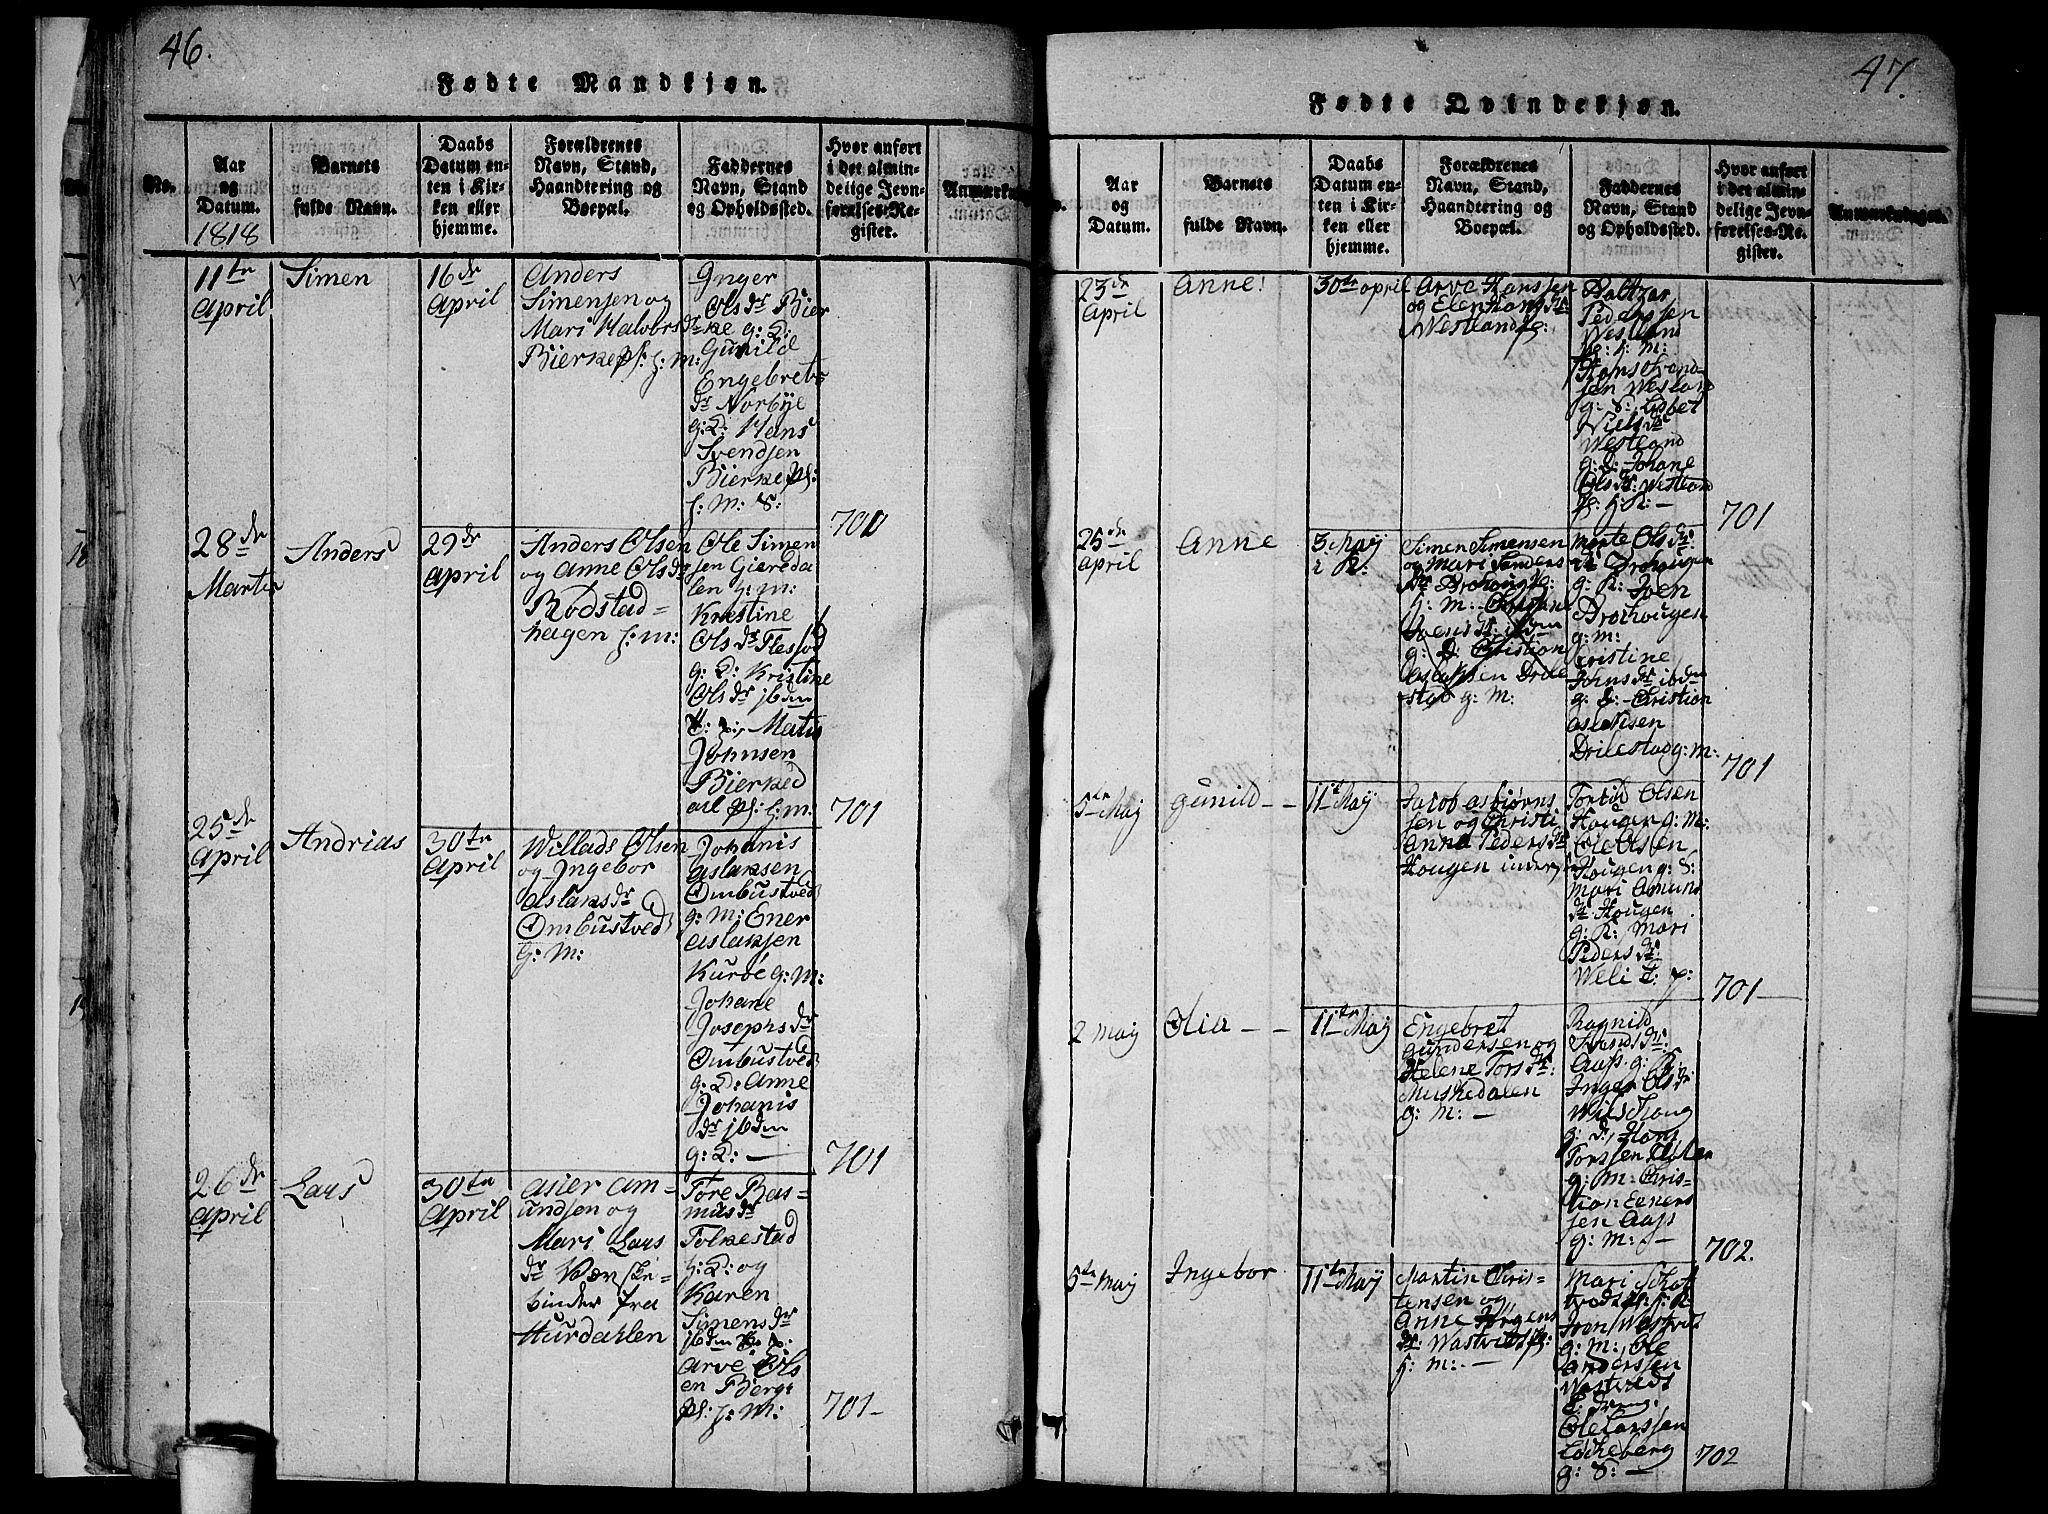 46.
Fødte Mandkjøn.
No.
Aar
og
Datum.
1818
Barnets
fulde Navn.
Daabs
Datum en-
ten i Kir-
ken eller
hjemme.
Forældrenes
Navn, Stand,
Haandtering og
Boepæl.
Faddernes
Navn, Stand
og Opholdssted.
Hvor anført
i det almin-
delige Jevn-
førelses-Re-
gister.
11te
April
Simen
16de
April
Anders
Simensen og
Mari Halvorsdr
Bierke pl: h: M:
Inger
Olsdr Bier
ke g: D:
Gunild
Engebrets
dr Norbye
g: D: Hans
Svendsen
Bierke pl:
h: M: S:
700
28de
Martz
Anders
29de
April
Anders Olsen
og Anne Olsdr
Rodstad-
hagen h: M:
Ole Simen
sen Giereda
len h: M:
Krestine
Olsdr
g: D: Kristine
Olsdr ibdm
Matis
Johnsen
Bierked
ael pl: h: M:
701
25de
April
Andrias
30te
April
Willads Olsen
og Ingebor
Aslaksdr
Ombustved
g: M:
Johanis
Aslaksen
Ombustved
g: M: Ener
Aslaksen
Kuröe g: M:
Johane
Josephsdr
Ombustved
g: D: Anne
Johanis
dr ibdm
g: D: —
701
26de
April
Lars
30te
April
Asler Am-
undsen og
Mari Lars
dr Værske-
binder fra
Hurdahlen
Tore Ras-
musdr
Folkestad
h: D: og
Karen
Simensdr
ibdm
Arve Ols
en Berg
pl: h: M:
701-
47.
Fødte Qvindekjøn.
Aar
og
Datum.
Barnets
fulde Navn.
Daabs
Datum en-
ten i Kir-
ken eller
hjemme.
Forældrenes
Navn, Stand,
Haandtering og
Boepæl.
Faddernes
Navn, Stand
og Opholdssted.
Hvor anført
i det almin-
delige Jevn-
førelses-Re-
gister.
Anmærkninger.
23de
April
Anne
30te April
Arve Hanssen
og Elen Hansdr
Westland pl:
Baltzar
Pederssen
Westland
pl: h: M:
Hans Svend
sen Westland
g: S: Lisbet
Nielsdr
Westland
g: D: Johane
Olsdr Westland
pl: h: K: —
701
25de
April
Anne
3 Maij
Simen Simensen
og Mari Anders
dr
h: M:
Joensdr ibdm
g: D: Christian
Aslaksen Drile
stad g: M:
Marte Olsdr
g: K: Joen
Drothougen
g: M:
Cristine
Johnsdr ibdm
g: D: Christian
Aslaksen
Drilestad g: M:
701
5te Maij
Gunild - -
11te Maij
Jacob Asbiørns
sen og Christi
Anna Pedersdr
Hougen
Torkild Olsen
Hougen g: M:
Ole Olsen
Hougen g: S:
Mari Amunds
dr Hougen
g: K: Mari
Pedersdr
Weli
701-
2 Maij
Olia - -
11te Maij
Engebret
Gundersen og
Helene Torsdr
Muskedalen
g: M: —
Ragnild
Svendsdr
Aas g: K:
Inger Olsdr
g: D: Hans
Torssen
g: M: Chris-
tian Eeners
sen Aas
g: M: —
702.
5te Maij
Ingebor
11te Maij
Martin Chris-
tensen og
Anne Jørgens
dr Wastvedt pl:
h: M: —
Mari
Iver Wastved
g: M: Ole
Anderssen
Wastvedt
Ole Larssen
Løcheberg
g: S: —
702